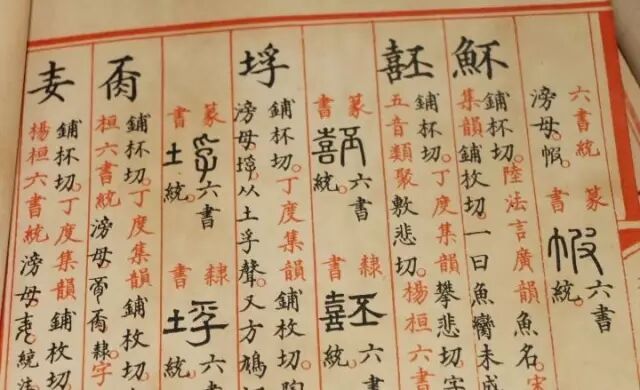 六書統
滂母
篆書
六書統。
魾
鋪杯切。陸法言廣韻魚名。字
集韻鋪枚切。一曰魚臠未成
嚭
鋪杯切。丁度集韻攀悲切。字
五音類聚敷悲切。楊桓六書
篆書嚭六書統。
隸書嚭六書統。
垺
鋪杯切。丁度集韻鋪枚切。陶
滂母。垺。从土孚聲。又方鳩切
篆書垺六書統。
隸書垺六書統。
鋪杯切。丁度集韻鋪枚切。
桓六書統滂母。隸。字
鋪杯切。丁度集韻鋪枚切。
楊桓六書統滂母。統注